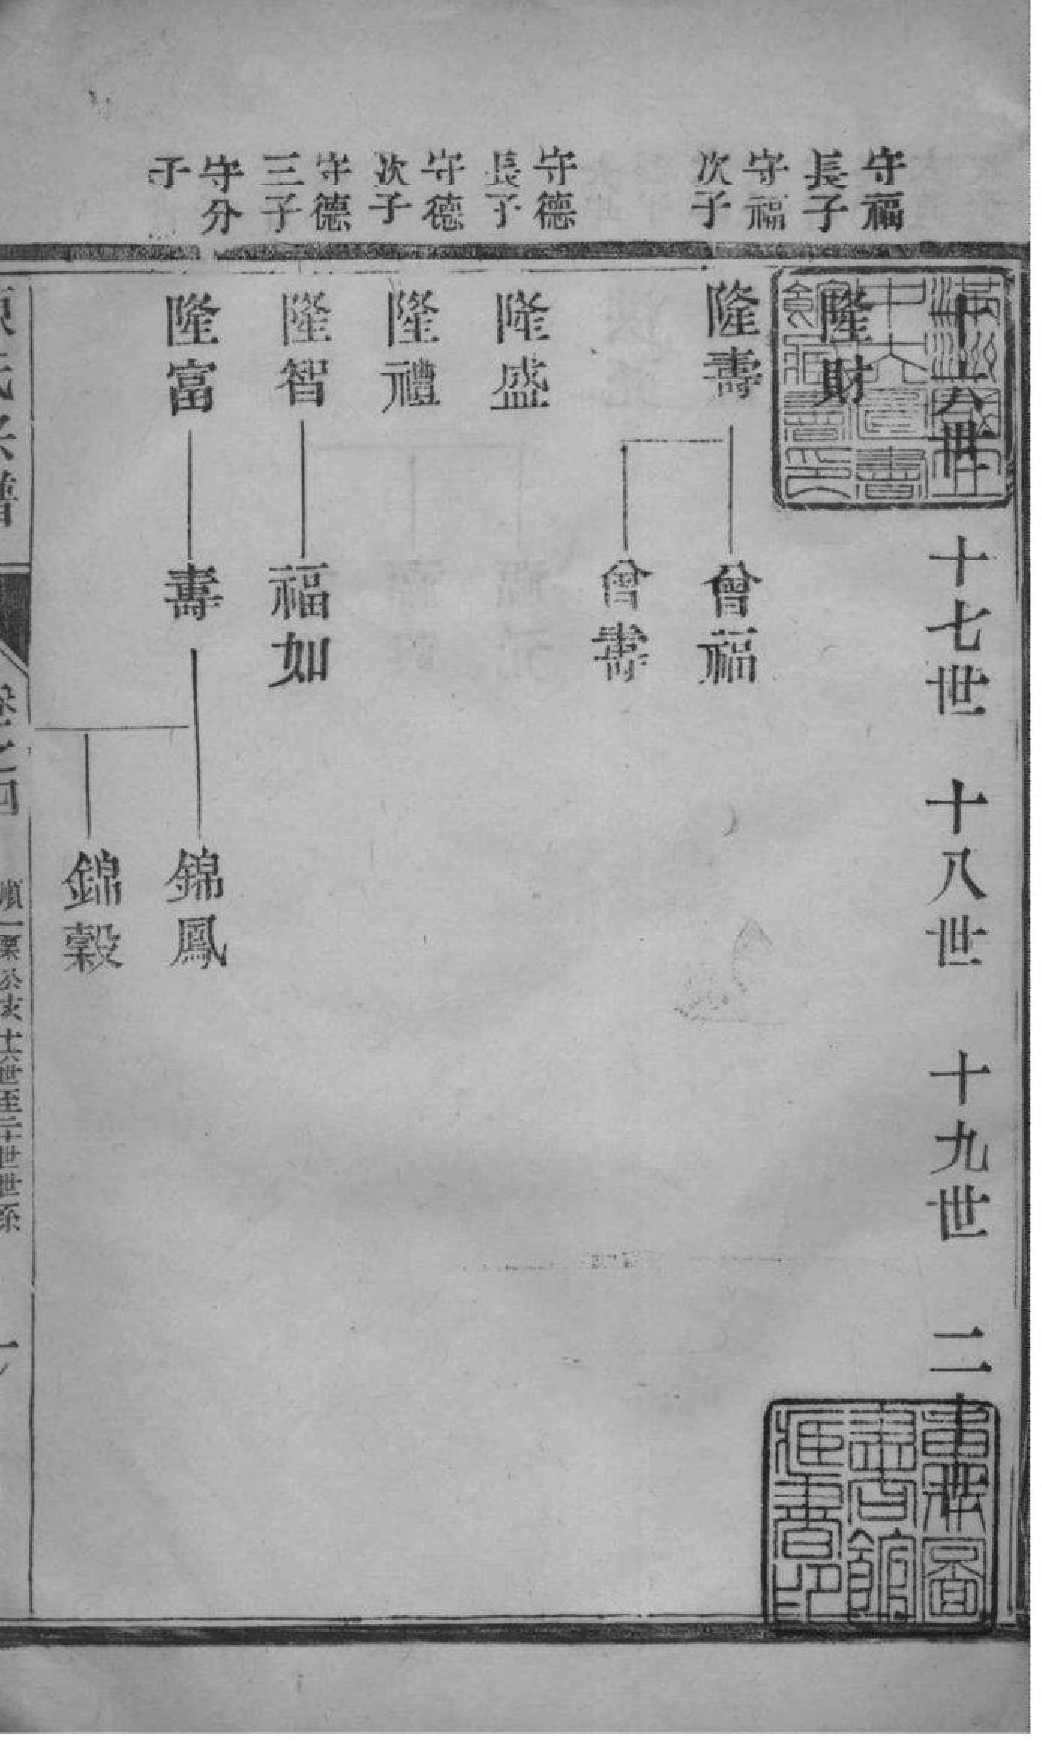 十六世
十七世
十八世
十九世
二十世
守福
長子
隆財
守福
次子
隆壽
曾福
曾壽
守德
長子
隆盛
守德
次子
隆禮
守德
三子
隆智
福如
守分
子
隆富
壽
錦鳳
錦穀
氏宗譜
卷之四
順一栗公支十六世至二十世世系